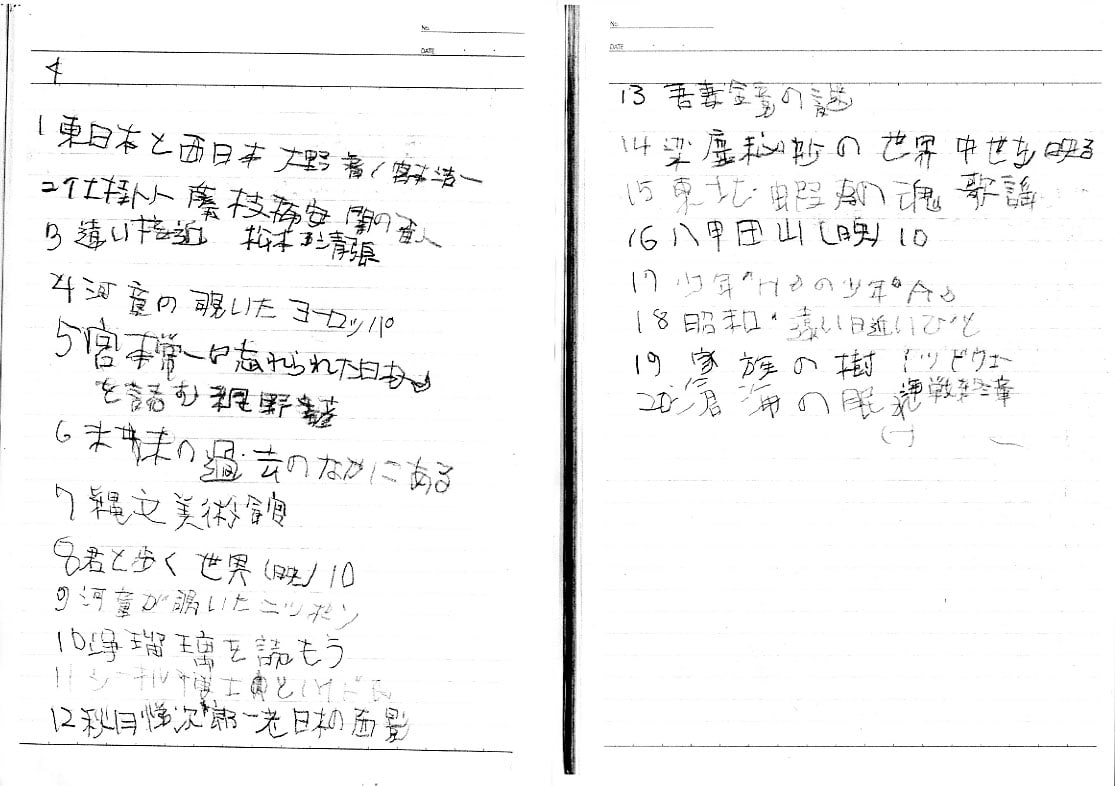 No.
DATE
4
1 東日本と西日本 大野 晋/宮本浩一
2 仕掛人 藤枝梅安 闇の
3 遠い接近 松本清張
4 河童の覗いたヨーロッパ
5 宮本常一 忘れられた日本
を読む 網野善彦
6 未来の過去のなかにある
7 縄文美術館
8 君と歩く世界(映)10
9 河童が覗いたニッポン
10 浄瑠璃を読もう
11 ジーキル博士とハイド氏
12 秋月悌次郎 老日本の面影
No.
DATE
13 吾妻鏡の謎
14 梁塵秘抄の世界 中世を映る
15 東北 蝦夷の魂 歌謡
16 八甲田山(映)10
17 少年"H"の少年"A"
18 昭和 遠い日近いひと
19 家族の樹 ミッドウェー
20 滄海の眠れ 海戦終章
(一)